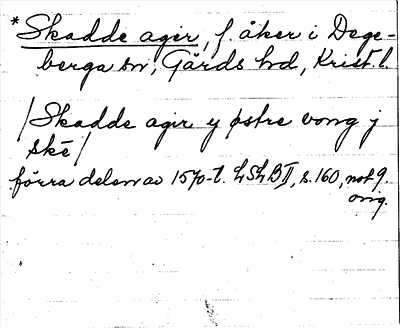 * Skadde ager, f. åker i Dege-
berga sn, Gärds hd, Krist. l.
/Skadde agir y østre vong j
skē/
förra delen av 1570-t. LSLB II, s. 160, not 9.
orig.